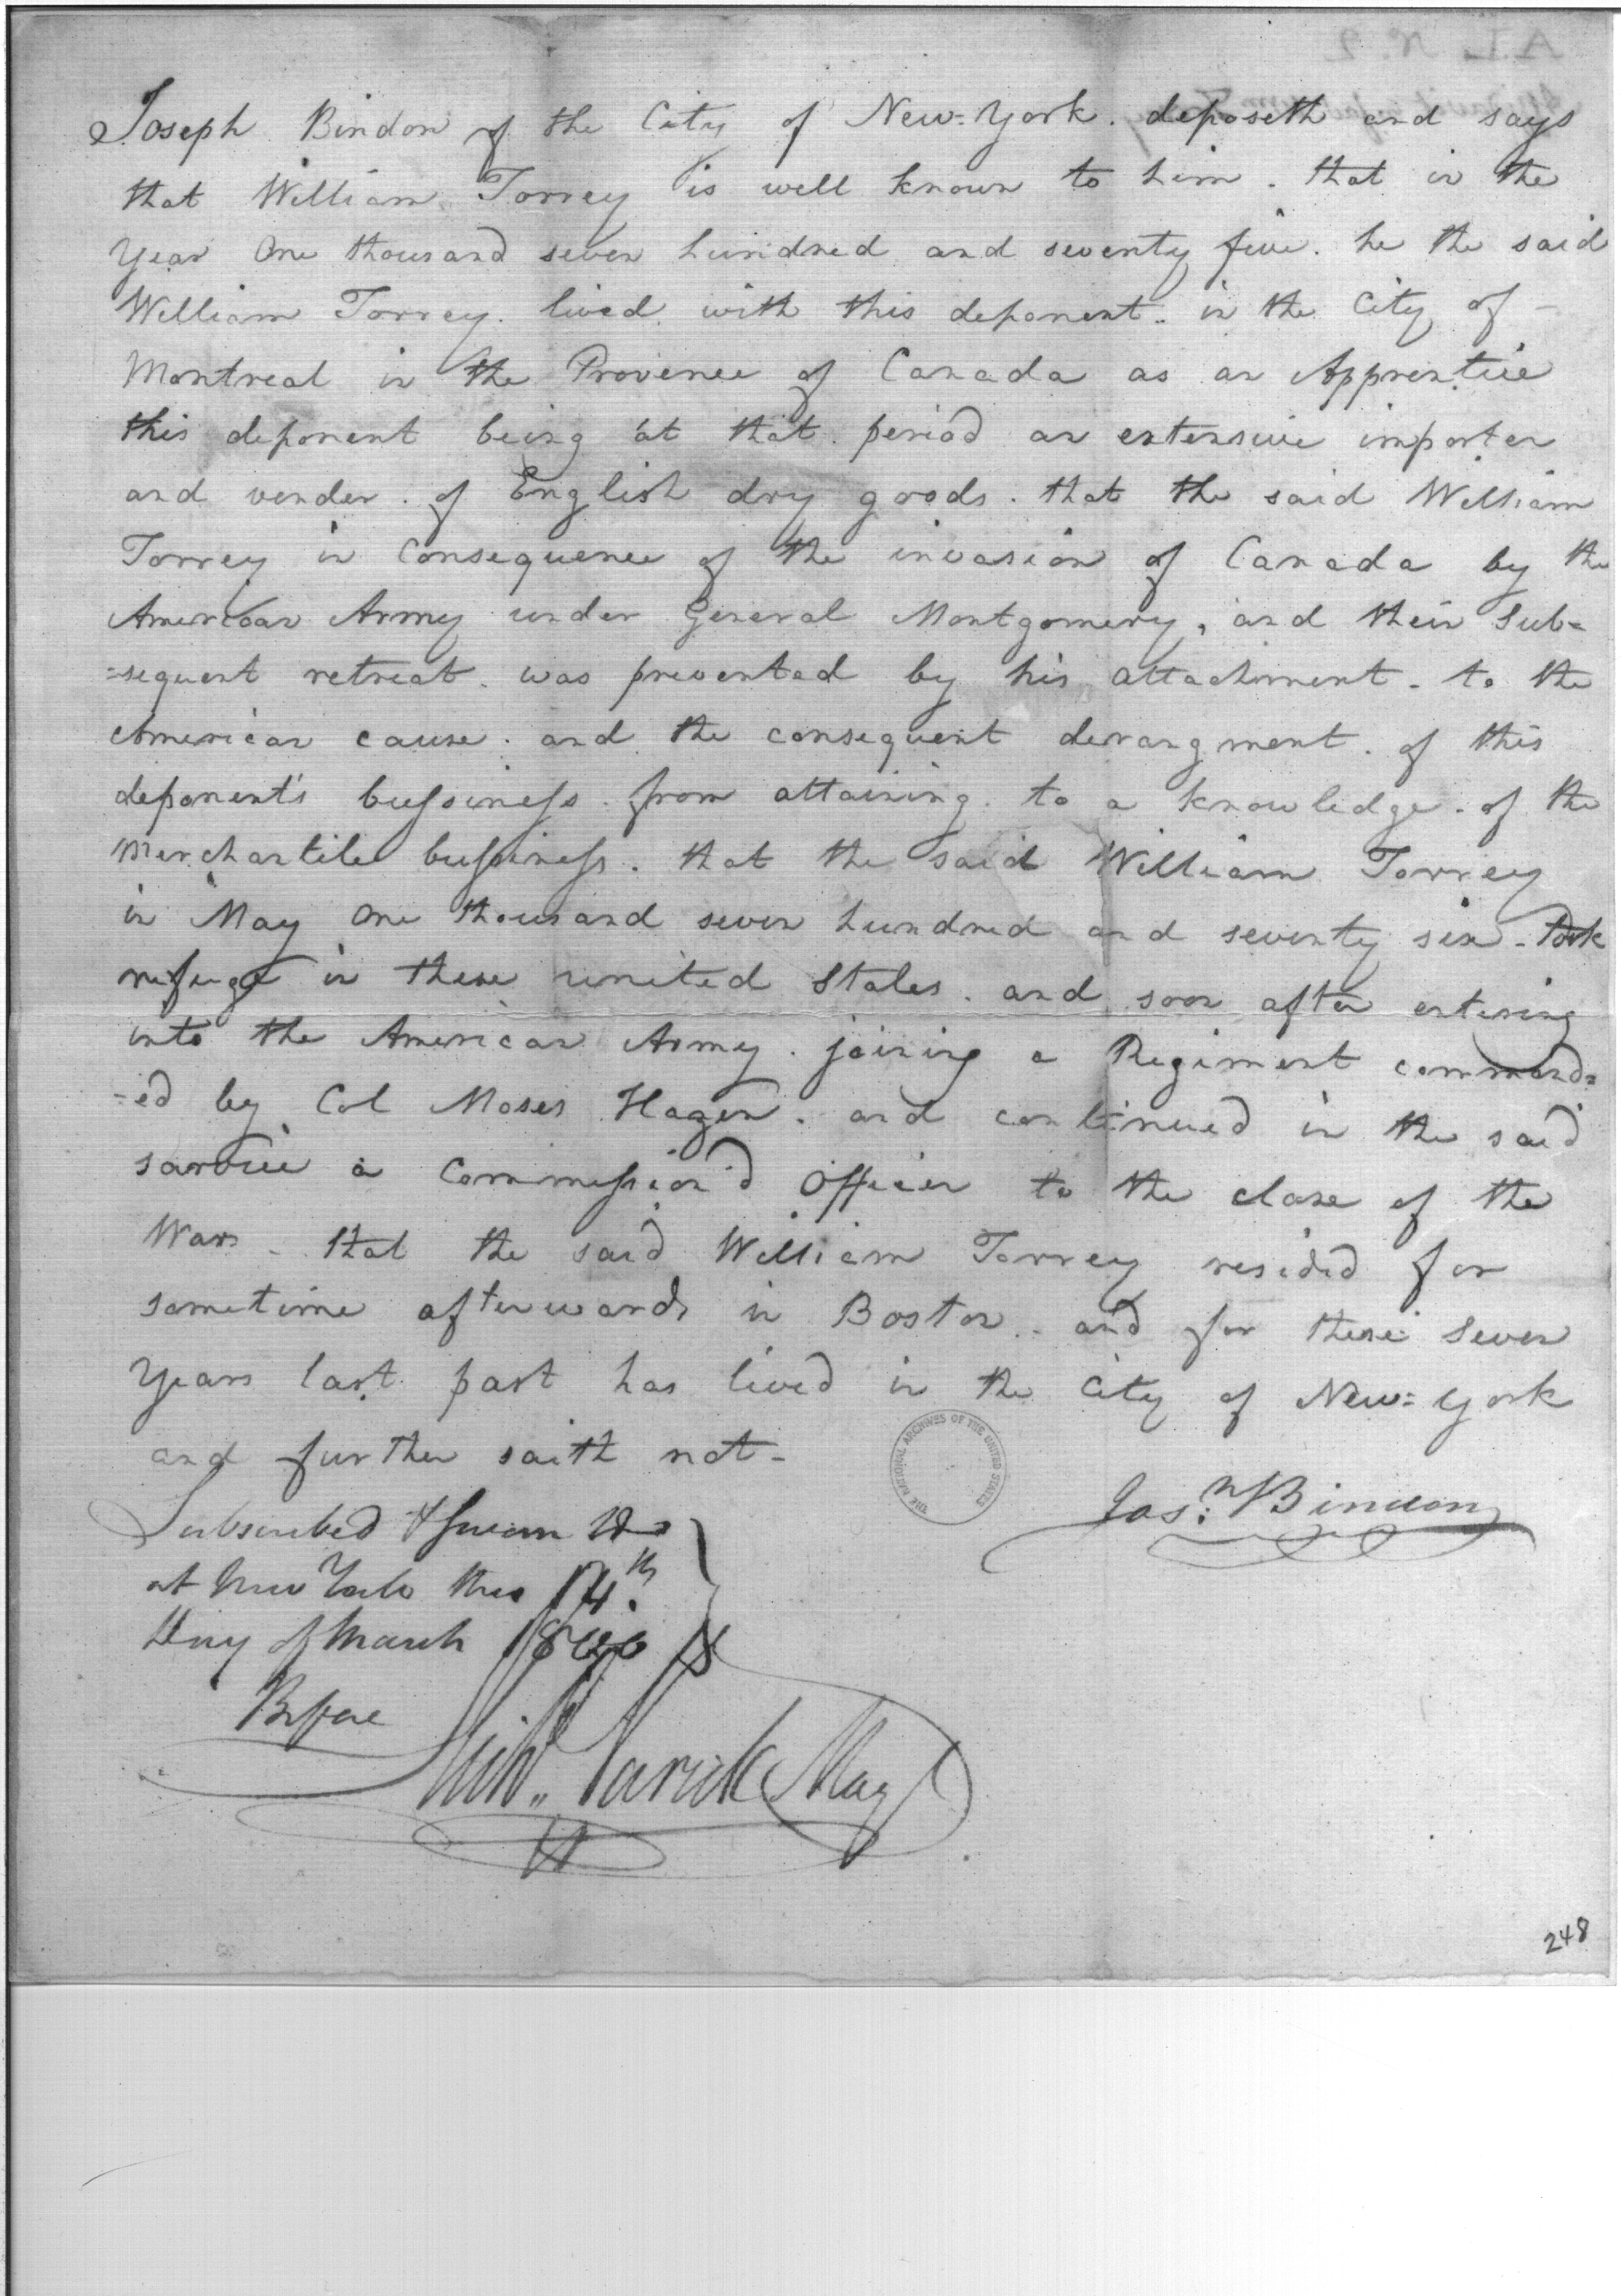 Joseph Bindon of the City of New-York. deposeth and says
that William Torrey is well known to him. that in the
Year One thousand seven hundred and seventy five. he the said
William Torrey. lived with this deponent. in the City of -
Montreal in the Provence of Canada as an Apprentice
this deponent being at that period an extensive importer
and vender. of English dry goods. that the said William
Torrey in Consequence of the invasion of Canada by the
American Army under General Montgomery, and their Sub=
=sequent retreat. was prevented by his attachment. to the
American cause. and the consequent derangment. of this
deponent's bussiness. from attaining. to a knowledge. of the
Merchantile bussiness. that the said William Torrey
in May One thousand seven hundred and seventy six - took
refuge in these united States. and soon after entering
into the American Army. joining a Regiment command=
-ed by Col Moses Hazen. and continued in the said
sarvice a Commission'd Officer to the close of the
War. - that the said William Torrey resided for
sometime afterwards in Boston. and for these Seven
Years last past has lived in the City of New=York
and further saith not -
Subscribed & sworn to
at New York this 14th
Day of March 1800
Before
Jos: Bindon
Richd. Varick May
THE NATIONAL ARCHIVES OF THE UNITED STATES
248
A.L No. 2